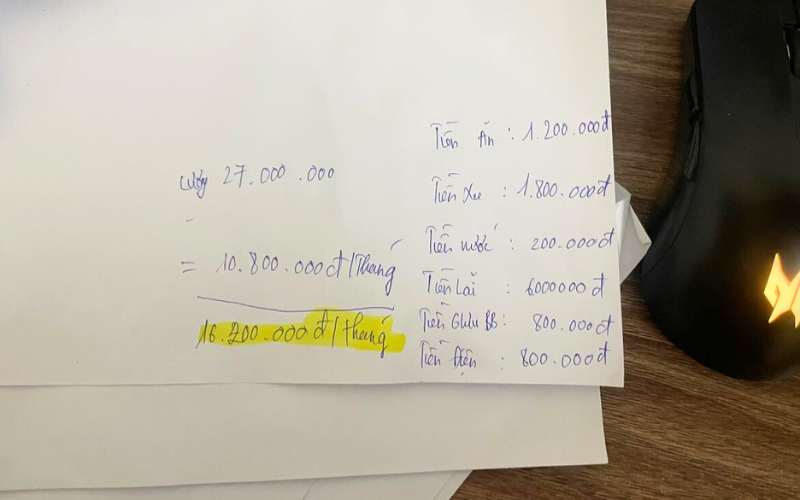 Lương 27.000.000
-
= 10.800.000đ/Tháng
16.200.000đ/tháng
Tiền Ăn : 1.200.000đ
Tiền Xe : 1.800.000đ
Tiền nước : 200.000đ
Tiền Lãi : 6000000đ
Tiền BB : 800.000đ
Tiền Điện : 800.000đ